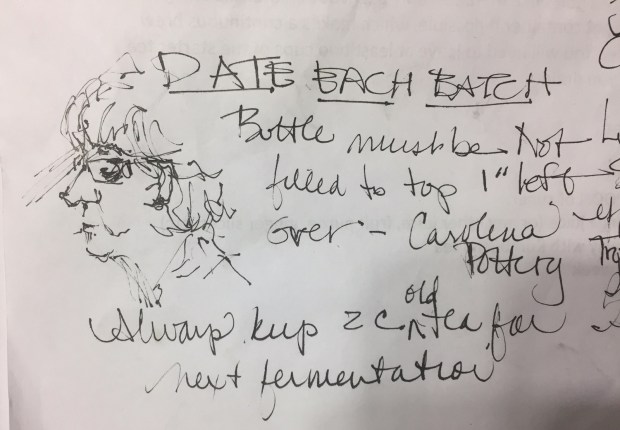 DATE EACH BATCH
Bottle must be Not
filled to top 1" left
over - Carolina
Pottery
Always keep 2 C. old tea for
next fermentation